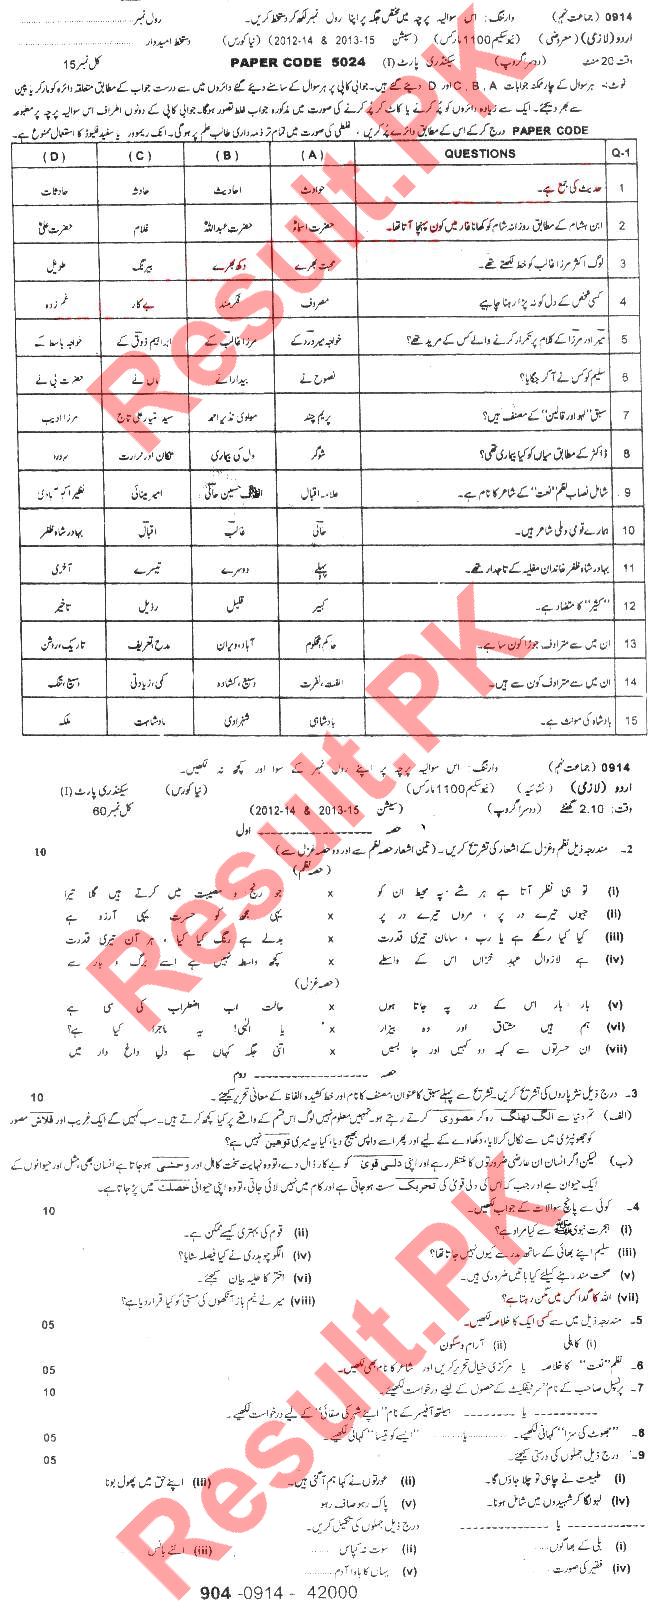 0914 (جماعت نہم) وارننگ:۔ اس سوالیہ پرچہ میں مختص جگہ پر اپنا رول نمبر لکھ کر دستخط کریں۔ رول نمبر
اردو (لازمی) (معروضی) (نیو سکیم 1100 مارکس) (سیشن 2013-15 & 2012-14) (نیا کورس) دستخط امیدوار
وقت 20 منٹ (دوسرا گروپ) سیکنڈری پارٹ (I) PAPER CODE 5024 کل نمبر 15
نوٹ:۔ ہر سوال کے چار ممکنہ جوابات A ، B ، C اور D دیئے گئے ہیں۔ جوابی کاپی پر ہر سوال کے سامنے دیئے گئے دائروں میں سے درست جواب کے مطابق متعلقہ دائرہ کو مارکر یا پین
سے بھر دیجئے۔ ایک سے زیادہ دائروں کو پُر کرنے یا کاٹ کر پُر کرنے کی صورت میں مذکورہ جواب غلط تصور ہوگا۔ جوابی کاپی کے دونوں اطراف اس سوالیہ پرچہ پر مطبوعہ
PAPER CODE درج کر کے اس کے مطابق دائرے پُر کریں ، غلطی کی صورت میں تمام تر ذمہ داری طالب علم پر ہوگی۔ انک ریموور یا سفید فلیوڈ کا استعمال ممنوع ہے۔
Q-1 QUESTIONS (A) (B) (C) (D)
1 حدیث کی جمع ہے۔ حوادث احادیث حادثہ حادثات
2 ابن ہشام کے مطابق روزانہ شام کو کھانا غار میں کون پہنچا آتا تھا۔ حضرت اسماءؓ حضرت عبداللہؓ غلام حضرت علیؓ
3 لوگ اکثر مرزا غالب کو خط لکھتے تھے۔ محبت بھرے دکھ بھرے بیرنگ طویل
4 کسی شخص کے دل کو نہ پڑا رہنا چاہیے مصروف فکرمند بے کار غم زدہ
5 میر اور مرزا کے کلام پر تکرار کرنے والے کس کے مرید تھے؟ خواجہ میر درد کے مرزا غالب کے ابراہیم ذوق کے خواجہ باسط کے
6 سلیم کو کس نے آ کر جگایا؟ نصوح نے بیدارا نے ماں نے حضرت بی نے
7 سبق "لہو اور قالین" کے مصنف ہیں؟ پریم چند مولوی نذیر احمد سید امتیاز علی تاج مرزا ادیب
8 ڈاکٹر کے مطابق میاں کو کیا بیماری تھی؟ شوگر دل کی بیماری تکان اور حرارت سردرد
9 شامل نصاب نظم "نعت" کے شاعر کا نام ہے۔ علامہ اقبال الطاف حسین حالی امیر مینائی نظیر اکبر آبادی
10 ہمارے قومی و ملی شاعر ہیں۔ حالی غالب اقبال بہادر شاہ ظفر
11 بہادر شاہ ظفر خاندان مغلیہ کے تاجدار تھے۔ پہلے دوسرے تیسرے آخری
12 "کثیر" کا متضاد ہے۔ کبیر قلیل رذیل تاخیر
13 ان میں سے مترادف جوڑا کون سا ہے۔ حاکم، محکوم آباد، ویران مدح، تعریف تاریک، روشن
14 ان میں سے مترادف کون سے ہیں۔ الفت، نفرت وسیع، کشادہ کمی، زیادتی وسیع، تنگ
15 بادشاہ کی مونث ہے۔ بادشاہی شہزادی بادشاہت ملکہ
0914 (جماعت نہم) وارننگ:۔ اس سوالیہ پرچہ پر اپنے رول نمبر کے سوا اور کچھ نہ لکھیں۔
اردو (لازمی) (انشائیہ) (نیو سکیم 1100 مارکس) (نیا کورس) سیکنڈری پارٹ (I)
وقت: 2.10 گھنٹے (دوسرا گروپ) (سیشن 2013-15 & 2012-14) کل نمبر 60
حصہ ---------- اول
2۔ مندرجہ ذیل نظم و غزل کے اشعار کی تشریح کریں۔ (تین اشعار حصہ نظم سے اور دو حصہ غزل سے) 10
(حصہ نظم)
(i) تو ہی نظر آتا ہے ہر شے پہ محیط ان کو x جو رنج و مصیبت میں کرتے ہیں گلا تیرا
(ii) جیوں تیرے در پر ، مروں تیرے در پر x یہی مجھ کو حسرت یہی آرزو ہے
(iii) کیا کیا رکھے ہے یا رب ، سامان تیری قدرت x بدلے ہے رنگ کیا کیا ، ہر آن تیری قدرت
(iv) ہے لازوال عہدِ خزاں اس کے واسطے x کچھ واسطہ نہیں ہے اسے برگ و بار سے
(حصہ غزل)
(v) بار بار اس کے در پہ جاتا ہوں x حالت اب اضطراب کی سی ہے
(vi) ہم ہیں مشتاق اور وہ بیزار x یا الٰہی! یہ ماجرا کیا ہے؟
(vii) ان حسرتوں سے کہہ دو کہیں اور جا بسیں x اتنی جگہ کہاں ہے دلِ داغ دار میں
حصہ ---------- دوم
3۔ درج ذیل نثر پاروں کی تشریح کریں۔ تشریح سے پہلے سبق کا عنوان، مصنف کا نام اور خط کشیدہ الفاظ کے معانی تحریر کیجئے۔ 10
(الف) تم دنیا سے الگ تھلگ رہ کر مصوری کرتے رہے ہو۔ تمہیں معلوم نہیں لوگ اس قسم کے واقعے پر کیا کچھ کرتے ہیں۔ سب کہیں گے ایک غریب اور قلاش مصور
کو جھونپڑی میں سے نکال کر لایا، دکھاوے کے لیے اور پھر اسے واپس بھیج دیا، کیا یہ میری توہین نہیں ہے؟
(ب) لیکن اگر انسان ان عارضی ضرورتوں کا منتظر رہے اور اپنی دلی قویٰ کو بے کار ڈال دے، تو وہ نہایت سخت کاہل اور وحشی ہو جاتا ہے انسان بھی، مثل اور حیوانوں کے
ایک حیوان ہے اور جب کہ اس کی دلی قویٰ کی تحریک سست ہو جاتی ہے اور کام میں نہیں لائی جاتی، تو وہ اپنی حیوانی خصلت میں پڑ جاتا ہے۔
4۔ کوئی سے پانچ سوالات کے جواب لکھیں۔ 10
(i) ہجرت نبویﷺ سے کیا مراد ہے؟ (ii) قوم کی بہتری کیسے ممکن ہے۔
(iii) سلیم اپنے بھائی کے ساتھ مدرسے کیوں نہیں جاتا تھا؟ (iv) الگو چوہدری نے کیا فیصلہ سنایا؟
(v) صحت مند رہنے کیلئے کیا باتیں ضروری ہیں۔ (vi) اختر کا حلیہ بیان کیجئے۔
(vii) اللہ کا گدا کس میں مگن رہتا ہے؟ (viii) میر نے نیم باز آنکھوں کی مستی کو کیا قرار دیا ہے؟
5۔ مندرجہ ذیل میں سے کسی ایک کا خلاصہ لکھیں۔ 05
(i) کاہلی (ii) آرام و سکون
6۔ نظم "نعت" کا خلاصہ یا مرکزی خیال تحریر کریں اور شاعر کا نام بھی لکھیں۔ 05
7۔ پرنسپل صاحب کے نام "سرٹیفکیٹ کے حصول کے لیے درخواست لکھیئے۔ 10
---------- یا ---------- ہیلتھ آفیسر کے نام "اپنے شہر کی صفائی" کے لیے درخواست لکھیے۔
8۔ "جھوٹ کی سزا" کہانی لکھیے۔ .......... یا .......... "ایسے کو تیسا" کہانی لکھیے۔ 05
9۔ درج ذیل جملوں کی درستی کیجئے۔ 05
(i) طبیعت نے چاہی تو چلا جاؤں گا۔ (ii) عورتوں نے کہا ہم آگئی ہیں۔ (iii) اپنے حق میں پھول بونا
(iv) لہو لگا کر شہیدوں میں شامل ہونا۔ (v) پاک رہو صاف رہو
---------- یا ---------- درج ذیل جملوں کی تکمیل کریں۔
(i) بلی کے بھاگوں..... (ii) سوت نہ کپاس ..... (iii) الٹے بانس
(iv) فقیر کی صورت ..... (v) یہاں کا باوا آدم .....
904 -0914 - 42000
Result.PK
Result.PK
Result.PK